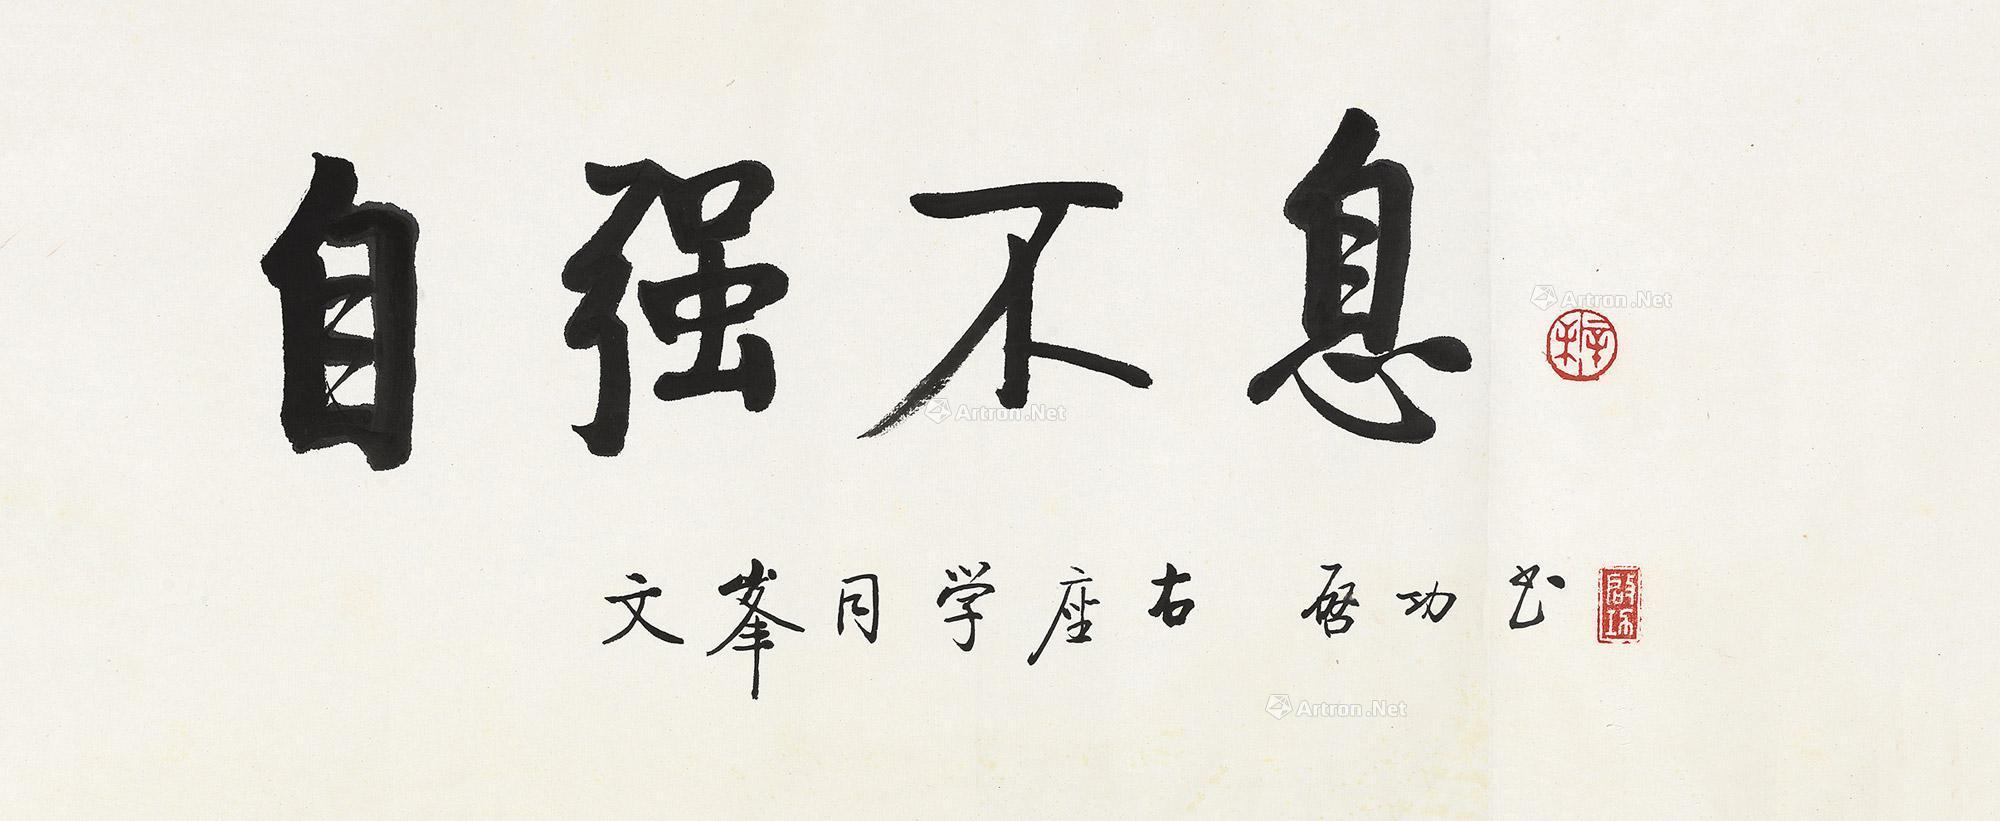 自强不息
Artron.Net
Artron.Net
文峯同学座右 启功书
启功
Artron.Net